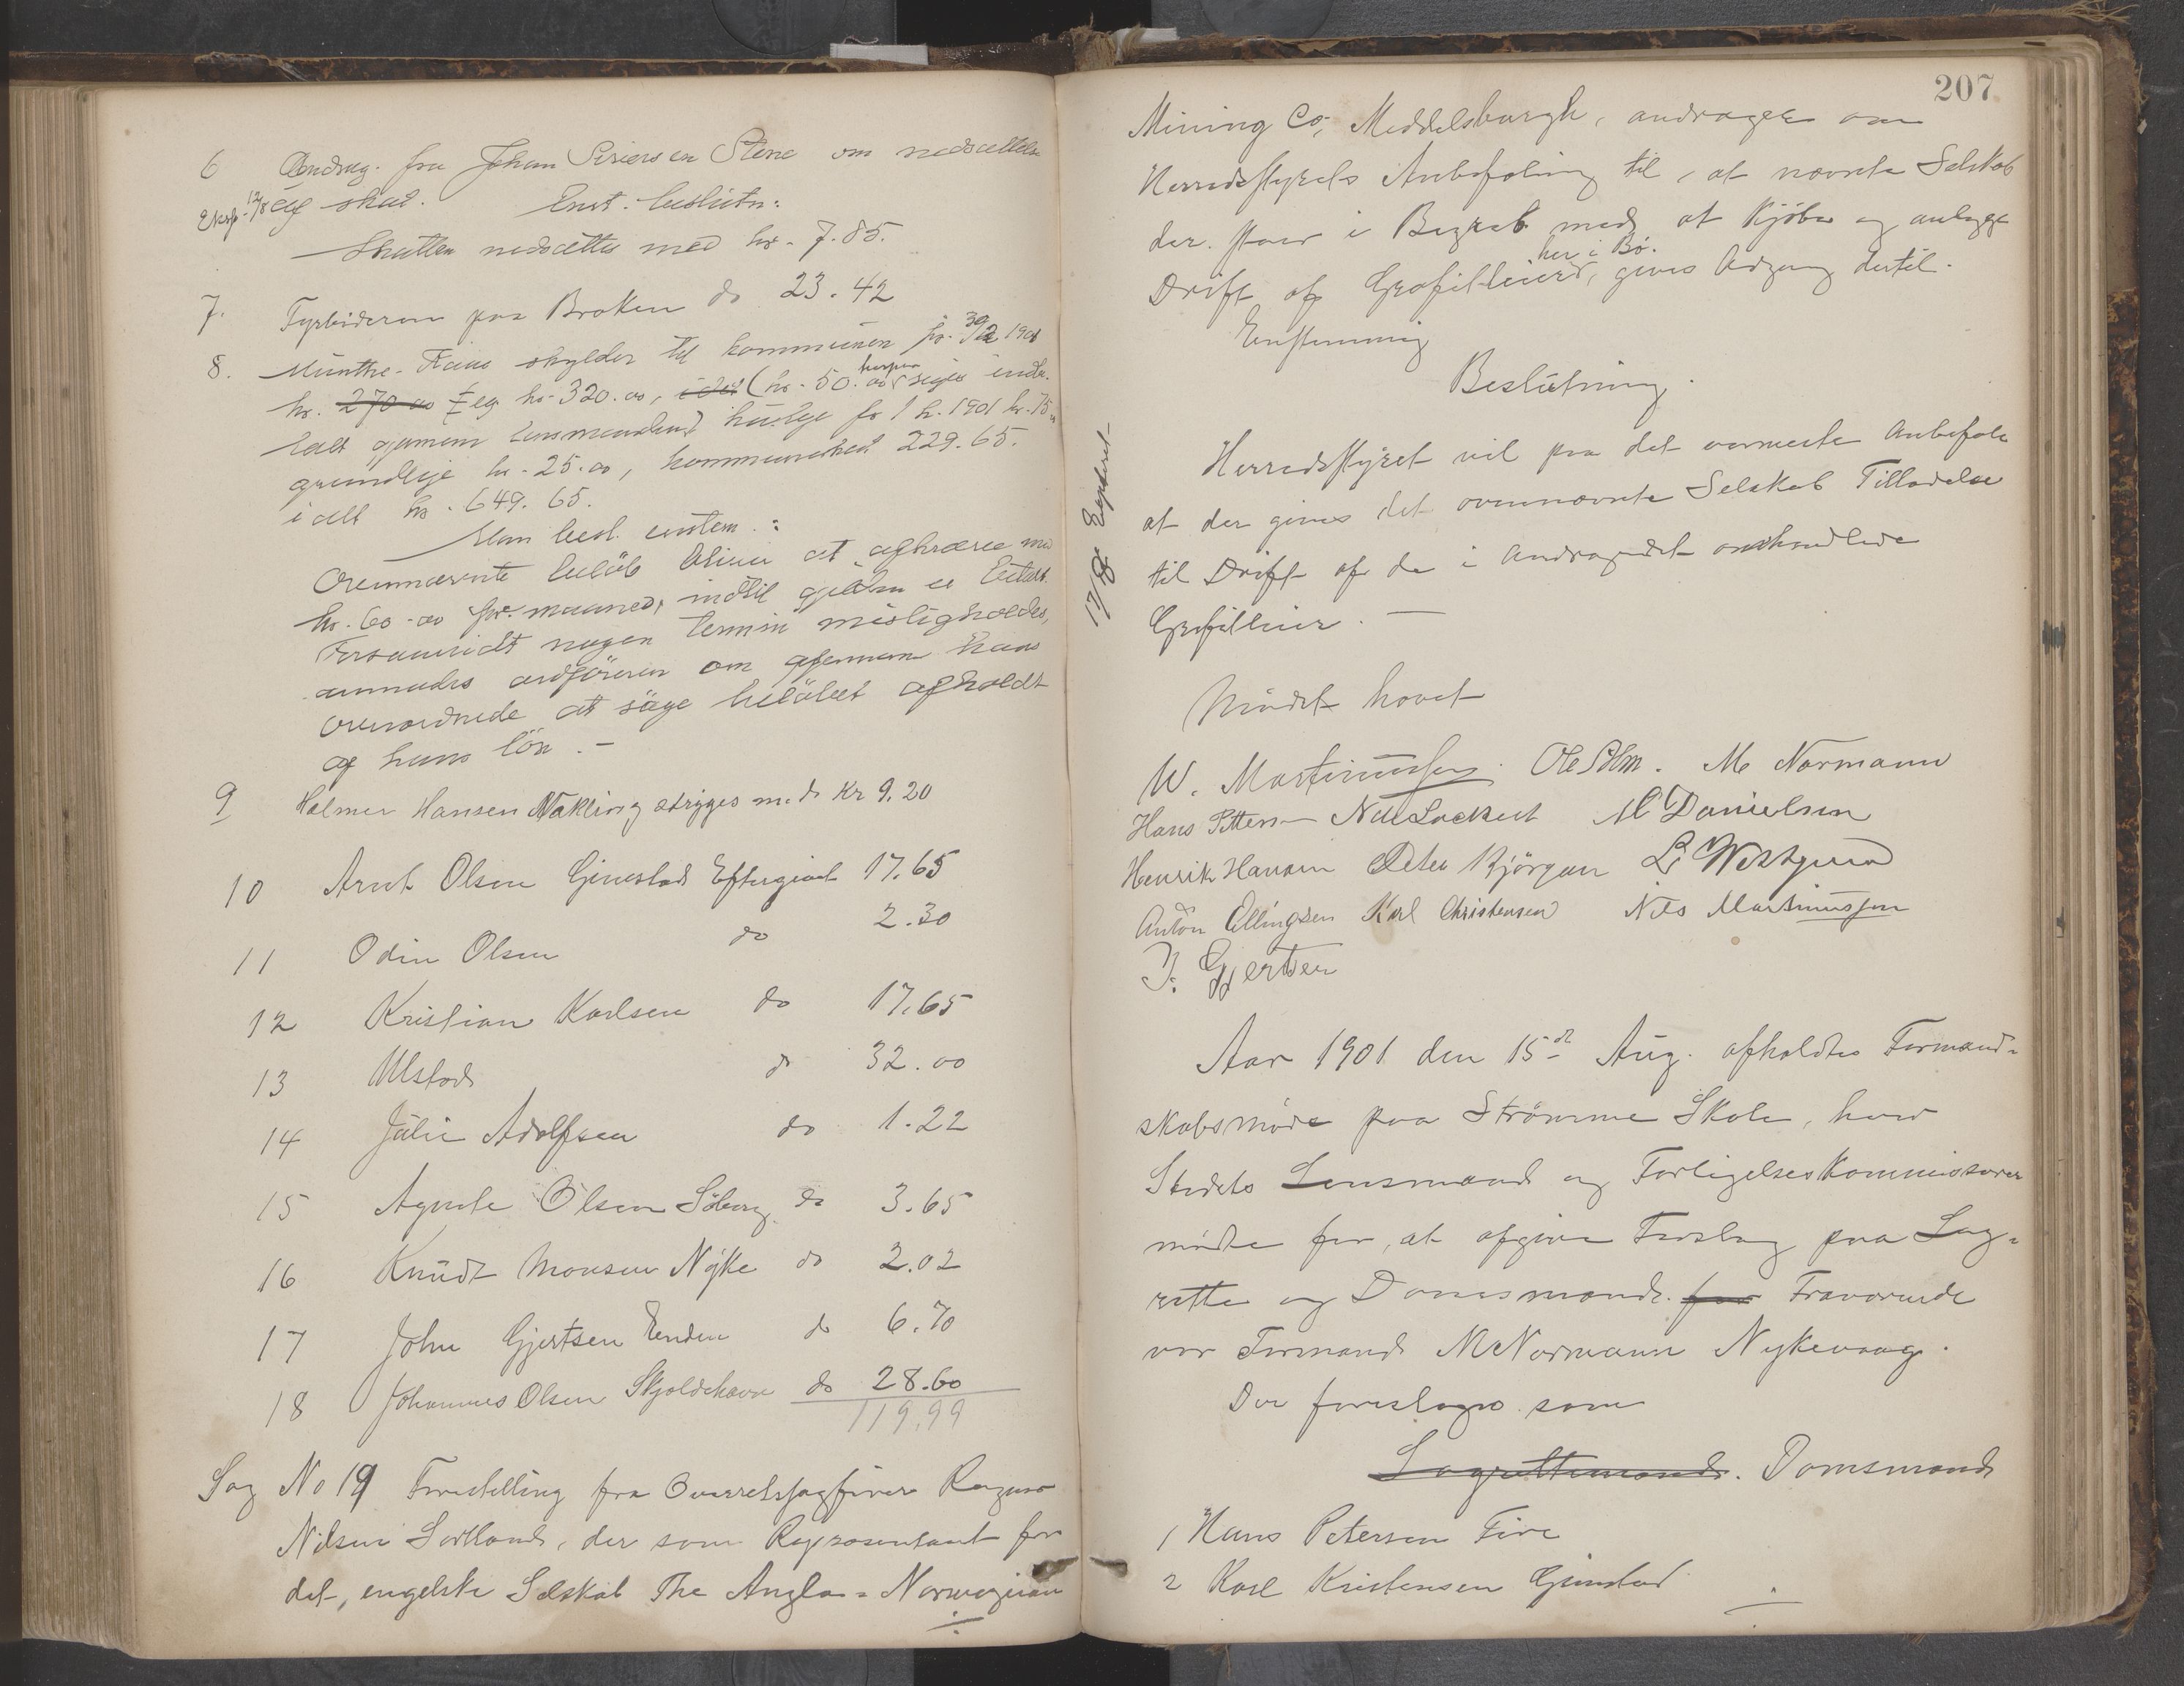 6 Andrag. fra Johan Siversen Stene om nedsættelse
Eksp. 12/8 af skat. Enst. beslutn:
Skatten nedsættes med kr. 7.85.
7. Fyrbøderen paa Braken do 23.42
8. Munthe-Kaas skylder til kommunen pr. 30/12 1901
kr. 270 00 kr. 320.00, (kr. 50.00 herpaa siges indb.
talt gjennem lensmanden) husleje for 1 h. 1901 kr. 75.
grundleje kr. 25.00, kommuneskat 229.65.
ialt kr. 649.65.
Man besl. enstem.:
Ovennævnte beløb bliver at afkræve med
kr. 60.00 pr. maaned, indtil gjelden er betalt.
Forsaavidt nogen termin misligholdes,
anmodes ordføreren om gjennem hans
overordnede at søge beløbet afholdt
af hans løn. -
9 Halmer Hansen Vakling stryges m. do Kr 9.20
10 Arnt Olsen Gimstad Eftergivet 17.65
11 Odin Olsen do 2.30
12 Kristian Karlsen do 17.65
13 Ulstad do 32.00
14 Julie Adolfsen do 1.22
15 Agnete Olsen Søberg do 3.65
16 Knudt Monsen Nyke do 2.02
17 John Gjertsen Eenden do 6.70
18 Johannes Olsen Skjoldehavn do 28.60
119.99
Sag No 19 Forestilling fra Overretssagfører Ragnar
Nilsen Sortland, der som Repræsentant for
det, engelske Selskab The Anglo-Norwegian
207
Mining Co, Meddelsburgh, andrager om
Herredsstyrets Anbefaling til, at nævnte Selskab
der staar i Begreb med at Kjøbe og anlægge
her i Bø.
Drift af Grafitleier, gives Adgang dertil.
Enstemmig
Beslutning.
17/8 Expederet
Herredsstyret vil paa det varmeste Anbefale
at der gives det ovennævnte Selskab Tilladelse
til Drift af de i Andragendet omhandlede
Grafitleier. —
Mødet hævet
W. Martinussen. Ole Holm. M Normann
Hans Pettersen Nils Lockert M Danielsen
Henrik Hansen Peter Bjørgan L Westgaard
Anton Ellingsen Karl Christensen Nils Martinussen
J. Gjertsen
Aar 1901 den 15de Aug. afholdtes Formand-
skabsmøde paa Strømme Skole, hvor
Stedets Lensmand og Forligelses Kommissærer
mødte for, at afgive Forslag paa Lag-
rette og Domsmænd. for Fraværende
var Formand M Normann Nykevaag.
Der foreslages som
Lagrettemænd. Domsmænd
1 Hans Petersen Fire
2 Karl Kristensen Gimstad